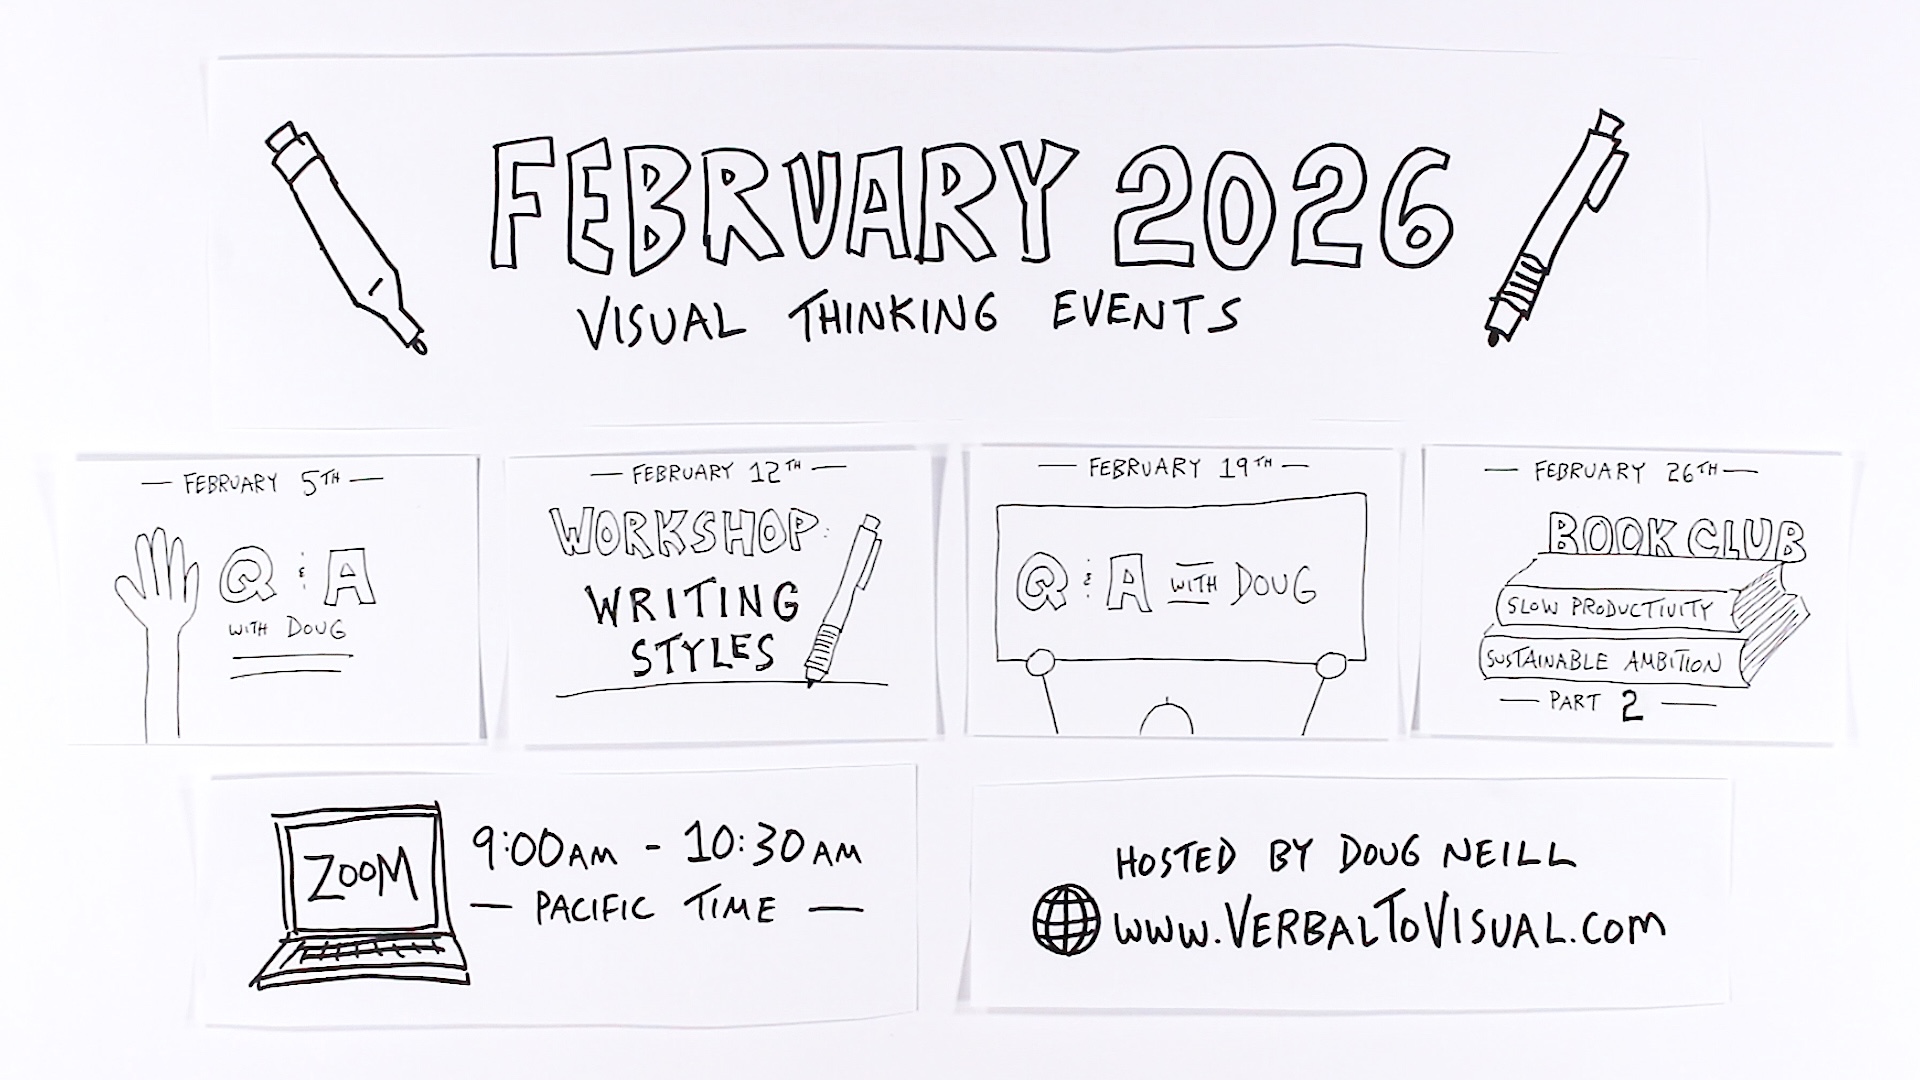 FEBRUARY 2026
VISUAL THINKING EVENTS
— FEBRUARY 5TH —
Q & A
WITH DOUG
— FEBRUARY 12TH —
WORKSHOP:
WRITING
STYLES
— FEBRUARY 19TH —
Q & A WITH DOUG
— FEBRUARY 26TH —
BOOK CLUB
SLOW PRODUCTIVITY
SUSTAINABLE AMBITION
— PART 2 —
ZOOM
9:00AM - 10:30AM
— PACIFIC TIME —
HOSTED BY DOUG NEILL
WWW.VERBALTOVISUAL.COM